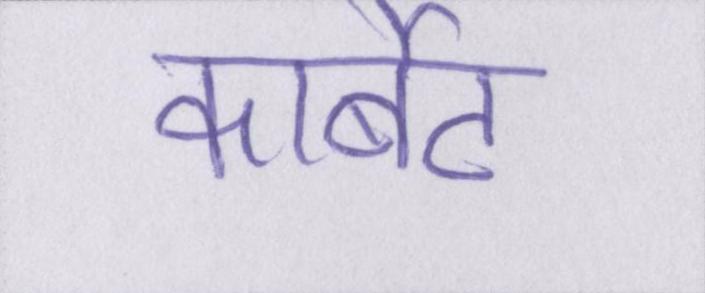 कार्बेट